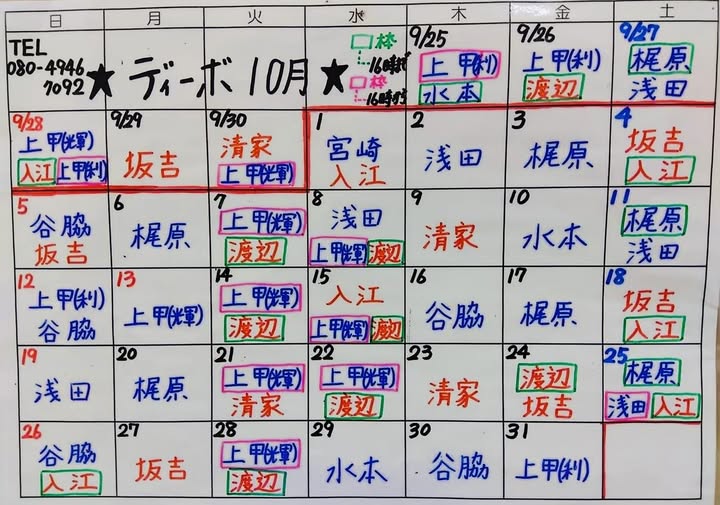 日 月 火 水 木 金 土
TEL
080-4946
7092
★ ディーボ 10月 ★
枠
16時まで
枠
16時から
9/25 9/26 9/27
上甲(利) 上甲(利) 梶原
水本 渡辺 浅田
9/28 9/29 9/30 1 2 3 4
上甲(輝) 坂吉 清家 宮崎 浅田 梶原 坂吉
入江 上甲(利) 上甲(輝) 入江 入江
5 6 7 8 9 10 11
谷脇 梶原 上甲(輝) 浅田 清家 水本 梶原
坂吉 渡辺 上甲(輝) 渡辺 浅田
12 13 14 15 16 17 18
上甲(利) 上甲(輝) 上甲(輝) 入江 谷脇 梶原 坂吉
谷脇 渡辺 上甲(輝) 渡辺 入江
19 20 21 22 23 24 25
浅田 梶原 上甲(輝) 上甲(輝) 清家 渡辺 梶原
清家 渡辺 坂吉 浅田 入江
26 27 28 29 30 31
谷脇 坂吉 上甲(輝) 水本 谷脇 上甲(利)
入江 渡辺